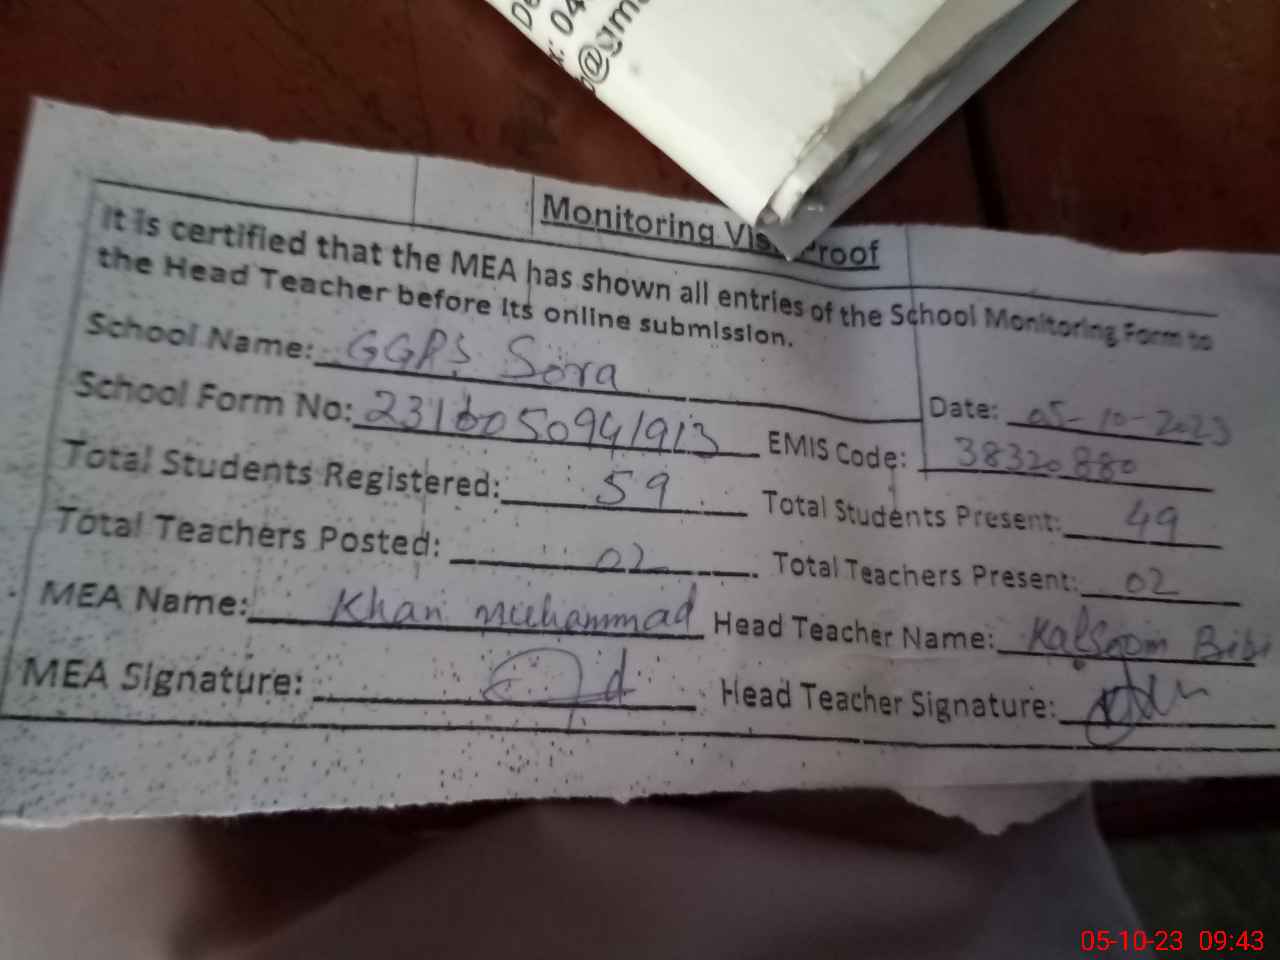 @gm
Monitoring Vis Proof
It is certified that the MEA has shown all entries of the School Monitoring Form to
the Head Teacher before its online submission.
School Name: GGPS Sora
Date: 05-10-2023
School Form No: 2316050941913 EMIS Code: 38320880
Total Students Registered: 59 Total Students Present: 49
Total Teachers Posted: 02 Total Teachers Present: 02
MEA Name: Khan Muhammad Head Teacher Name: Kalsoom Bibi
MEA Signature: Head Teacher Signature:
05-10-23 09:43